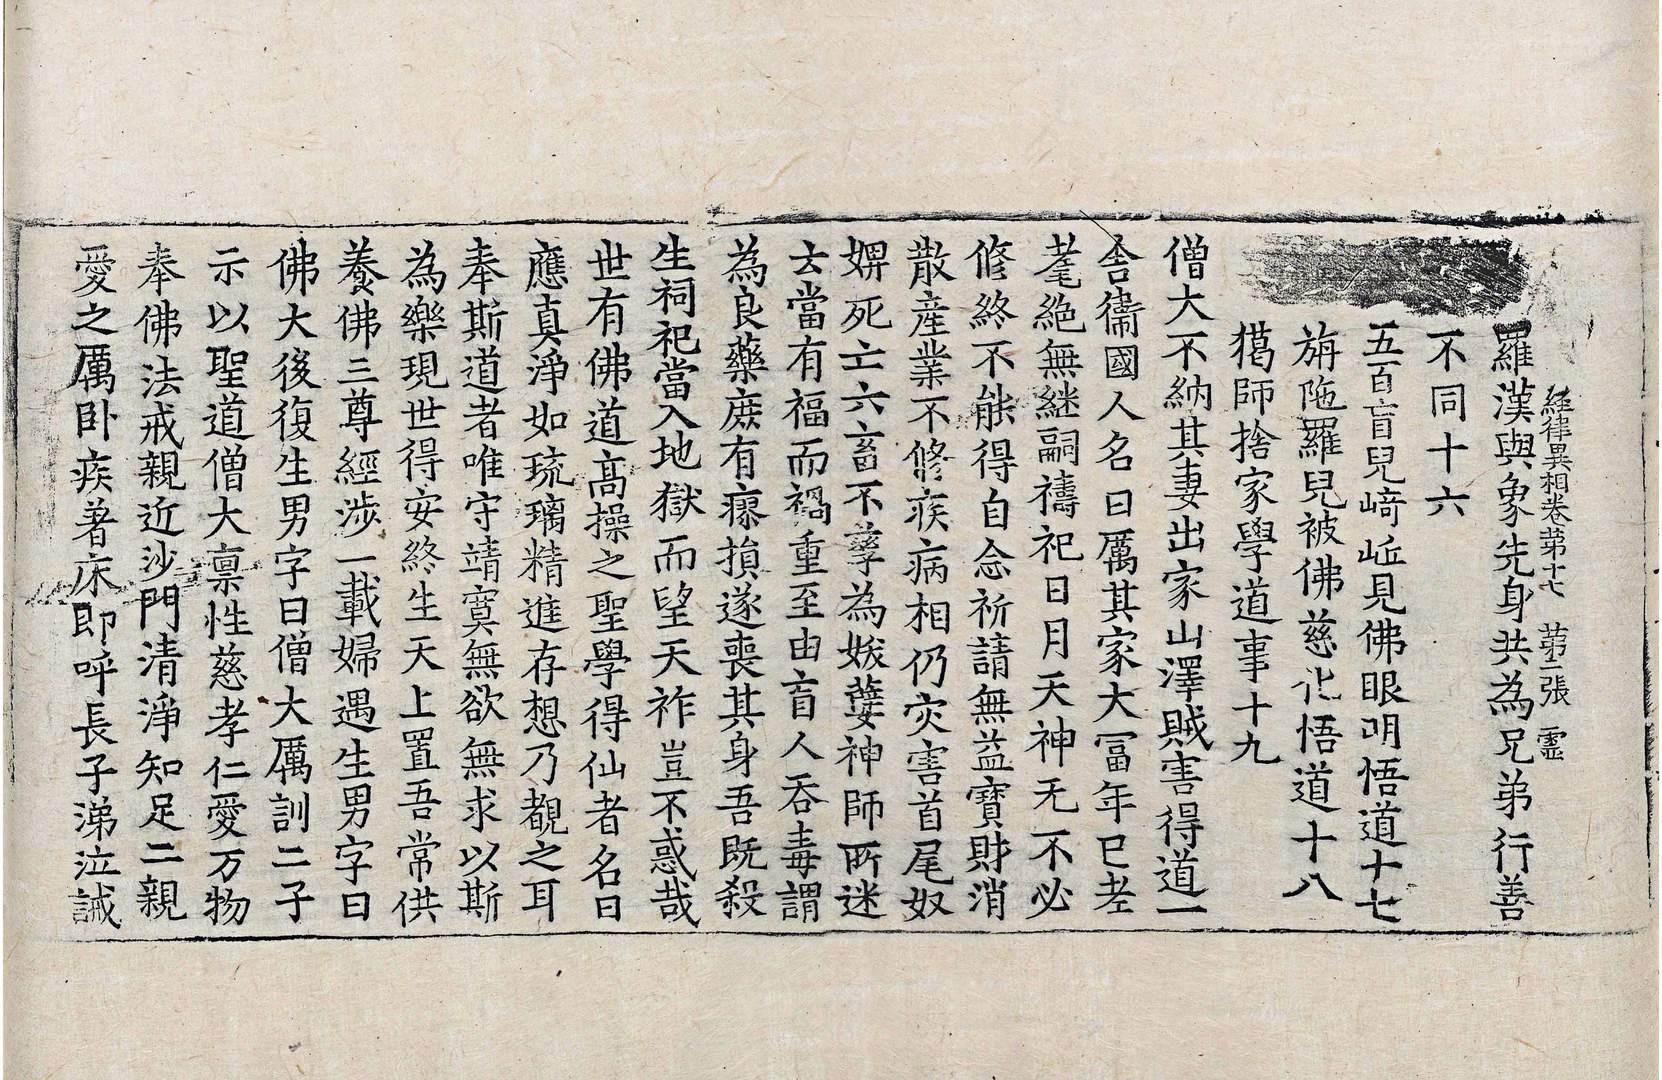 經律異相卷第十七 第二張 靈
羅漢與象先身共為兄弟行善
不同十六
五百盲兒﨑䧢見佛眼明悟道十七
旃陁羅兒被佛慈化悟道十八
獦師捨家學道事十九
僧大不納其妻出家山澤賊害得道一
舍衞國人名曰厲其家大冨年已老
耄絶無継嗣禱祀日月天神无不必
修終不能得自念祈請無益寶財消
散産業不修疾病相仍灾害首尾奴
婢死亡六畜不孳為妭孽神師所迷
云當有福而禍重至由盲人吞毒謂
為良藥庶有瘳損遂喪其身吾既殺
生祠祀當入地獄而望天祚豈不惑哉
世有佛道髙操之聖學得仙者名曰
應真淨如琉璃精進存想乃覩之耳
奉斯道者唯守靖寞無欲無求以斯
為樂現世得安終生天上置吾常供
養佛三尊經涉一載婦遇生男字曰
佛大後復生男字曰僧大厲訓二子
示以聖道僧大禀性慈孝仁愛万物
奉佛法戒親近沙門清淨知足二親
愛之厲卧疾著床即呼長子涕泣誡